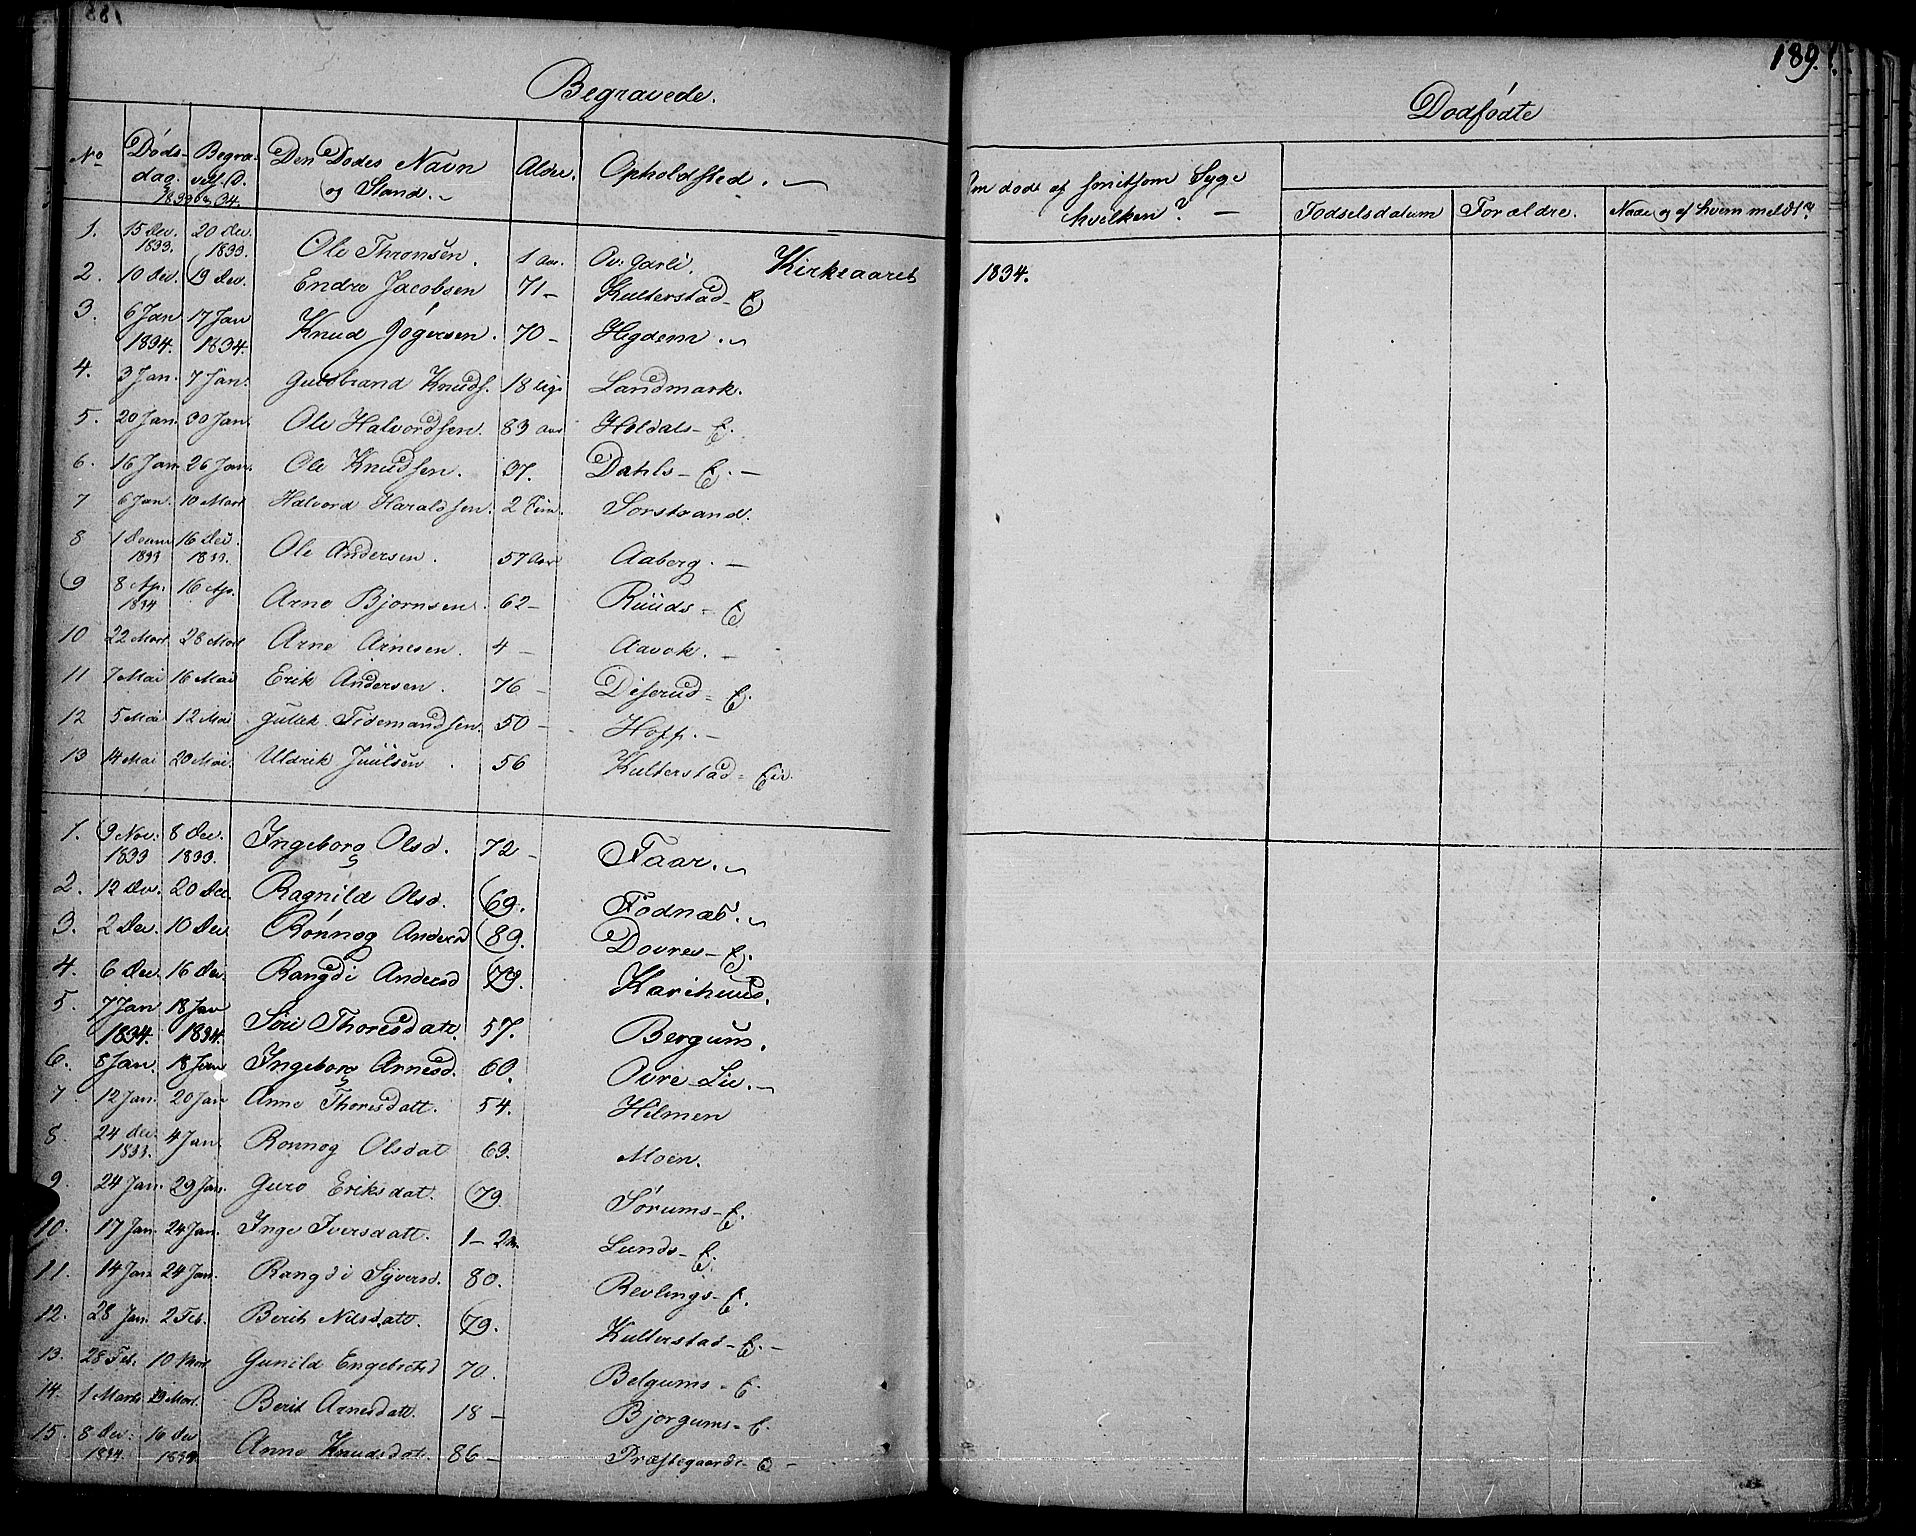 188
189.
Begravede.
Dødfødte
No
Døds-dag.
Begra-vel. D.
1833 og 34.
Den Dødes Navn og Stand.
Alder.
Opholdsted.
Om död af smitsom Syge hvilken?
Fødselsdatum
Forældre.
Naar og af hvem meldt?
Kirkeaaret 1834.
1. 15 Dec. 1833. 20 Dec. 1833. Ole Thronsen. 1 Aar. Øv: Garli.
2. 10 Dec. 19 Dec. Endre Jacobsen 71 - Kulterstad - E
3. 6 Jan 1834. 17 Jan 1834. Knud Jögersen. 70 - Hegdem.
4. 3 Jan. 7 Jan. Gulbrand Knuds. 18 Uge Landmark.
5. 20 Jan. 30 Jan. Ole Halvordsen. 83 Aar Holdals - E.
6. 16 Jan. 26 Jan. Ole Knudsen. 37. Dahls - E. -
7 6 Jan. 10 Mart Halvord Haraldsen. 2 Tim. Sorstrand.
8 1 Decem 1833 16 Dec. 1833. Ole Andersen. 57 Aar Aaberg. -
9 8 Ap. 1834 16 Ap. Arne Bjornsen. 62 - Ruuds - E
10 22 Mart 28 Mart Arne Arnesen. 4 - Aavok. -
11 7 Mai 16 Mai Erik Andersen. 76 - Diserud - E.
12 5 Mai 12 Mai Gulek Tidemandsen. 50 - Hoff. -
13 14 Mai 20 Mai. Uldrik Juulsen. 56 Kulterstad - Eie.
1. 9 Nov: 1833 8 Dec. 1833. Ingeborg Olsd. 72 - Faar.
2. 12 Dec. 20 Dec. Ragnild Olsd. 69. Fodnæs.
3. 2 Dec. 10 Dec. Rönnog Andersd 89. Dovres - E.
4. 6 Dec. 16 Dec. Rangdi Andersd 79. Karihuus.
5. 7 Jan 1834. 18 Jan 1834. Siri Thoresdatt. 57. Bergum.
6. 8 Jan. 18 Jan Ingeborg Arnesd. 60. Ovre - Lie. -
7 12 Jan. 20 Jan Anne Thoresdatt. 54. Hilmen
8. 24 Dec. 1833. 4 Jan. Ronnog Olsdat 69. Moen.
9. 24 Jan. 29 Jan. Guro Eriksdat. 79. Sørums - E.
10. 17 Jan. 24 Jan. Inge Iversdatt. 1 - 2 Lunds - E.
11. 14 Jan 24 Jan. Rangdi Syversd. 80. Revlings - E.
12. 28 Jan. 2 Feb. Berit Nilsdatt. 79. Kulterstad - E. -
13. 28 Feb. 10 Mart Gunild Engebretsd 70. Belgums - E.
14. 1 Marts Mart. Berit Arnesdatt. 18 - Bjorgums - E.
15. 8 Dec: 16 Dec Anne Knudsdat. 86 - Præstegaards - E -